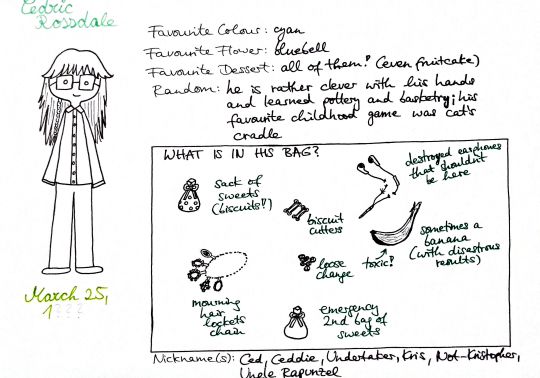 Cedric
Rossdale
Favourite Colour: cyan
Favourite Flower: bluebell
Favourite Dessert: all of them! (even fruitcake)
Random: he is rather clever with his hands
and learned pottery and basketry; his
favourite childhood game was cat's
cradle
WHAT IS IN HIS BAG?
sack of
sweets
(biscuits!!)
biscuit
cutters
destroyed earphones
that shouldn't
be here
sometimes a
banana
(with disastrous
results)
toxic!
loose
change
mourning
hair
lockets
chain
emergency
2nd bag of
sweets
March 25,
1???
Nickname(s): Ced, Ceddie, Undertaker, Kris, Not-Kristopher,
Uncle Rapunzel